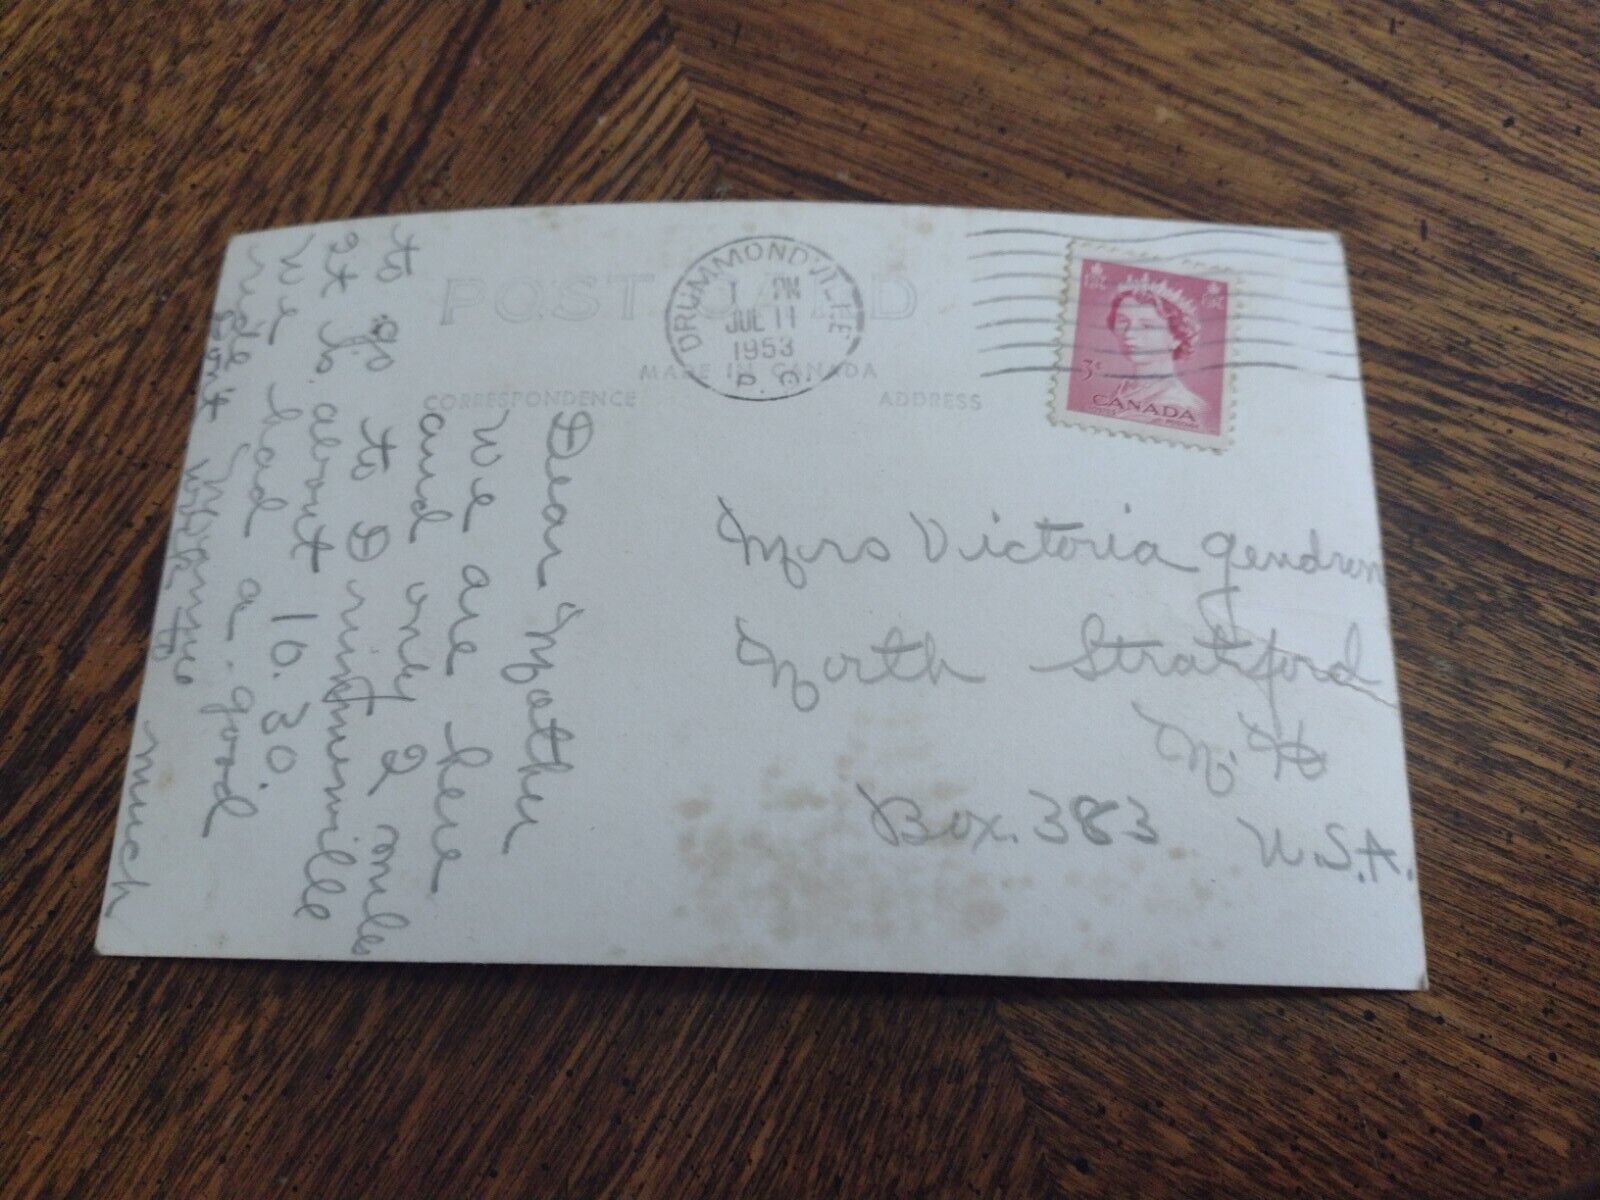 POST CARD
MADE IN CANADA
CORRESPONDENCE
ADDRESS
DRUMMONDVILLE
1 PM
JUL 11
1953
P. Q.
3¢
CANADA
Dear Mother
We are here
and only 2 miles
to go to Drummondville
It is about 10.30.
We had a good
ride.
Don't work
much
Mrs Victoria Gendron
North Stratford
N. H
Box. 383 U.S.A.